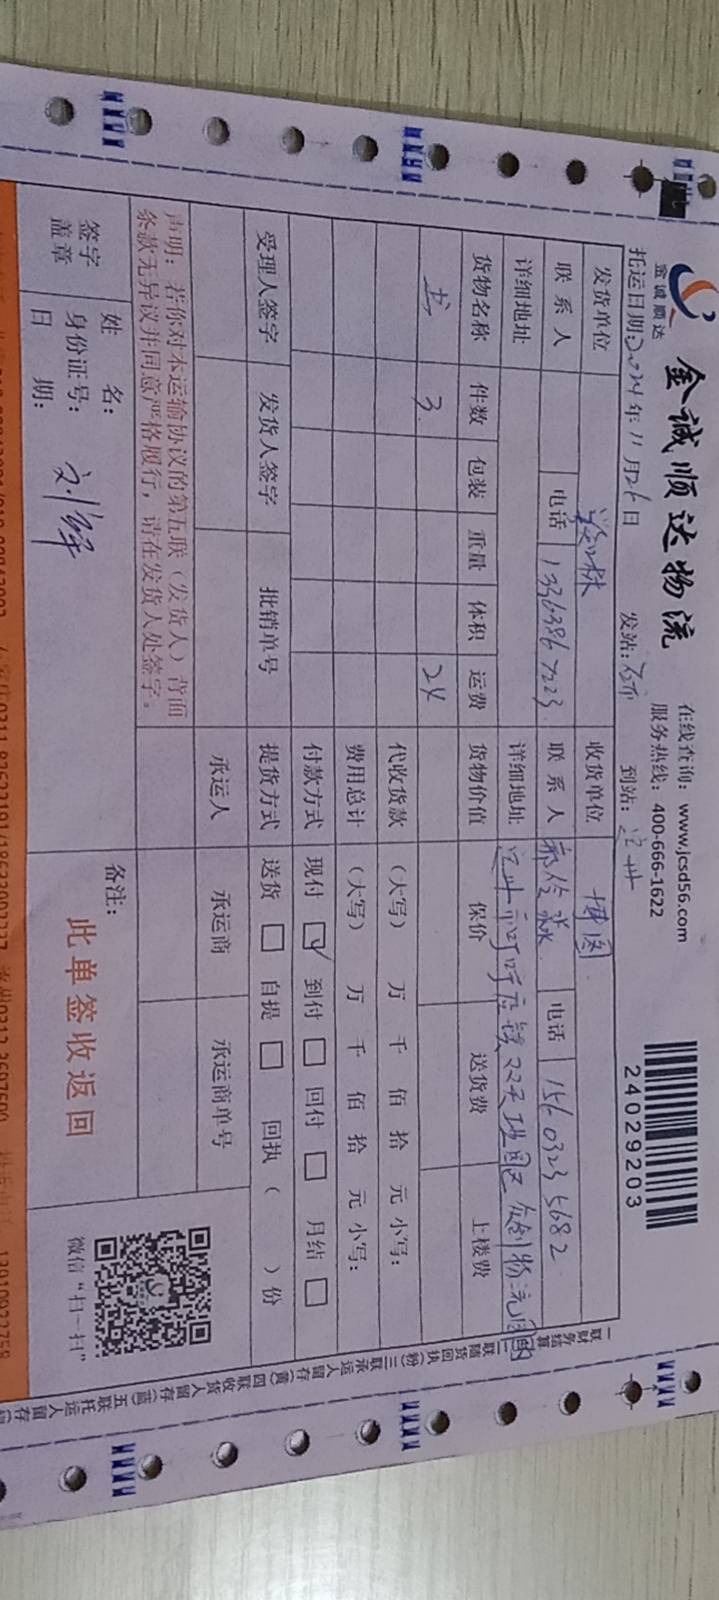 金诚顺达
金诚顺达物流
在线查询：www.jcsd56.com
服务热线：400-666-1622
24029203
托运日期:2024年11月26日 发站: 到站:
发货单位 收货单位 博图
联系人 电话 13363867223 联系人 电话 15603235682
详细地址 详细地址
货物名称 件数 包装 重量 体积 运费 货物价值 保价 送货费 上楼费
书 3. 24
代收货款 （大写） 万 仟 佰 拾 元 小写：
费用总计 （大写） 万 仟 佰 拾 元 小写：
付款方式 现付 ☑ 到付 □ 回付 □ 月结 □
受理人签字 发货人签字 批销单号 提货方式 送货 □ 自提 □ 回执（ ）份
承运人 承运商 承运商单号
声明：若你对本运输协议的第五联（发货人）背面
条款无异议并同意严格履行，请在发货人处签字。
签字
盖章
姓 名：
身份证号：
日 期：
备注：
此单签收返回
微信“扫一扫”
一联财务结算 二联随货回执（粉） 三联承运人留存（黄） 四联收货人留存（蓝） 五联托运人留存